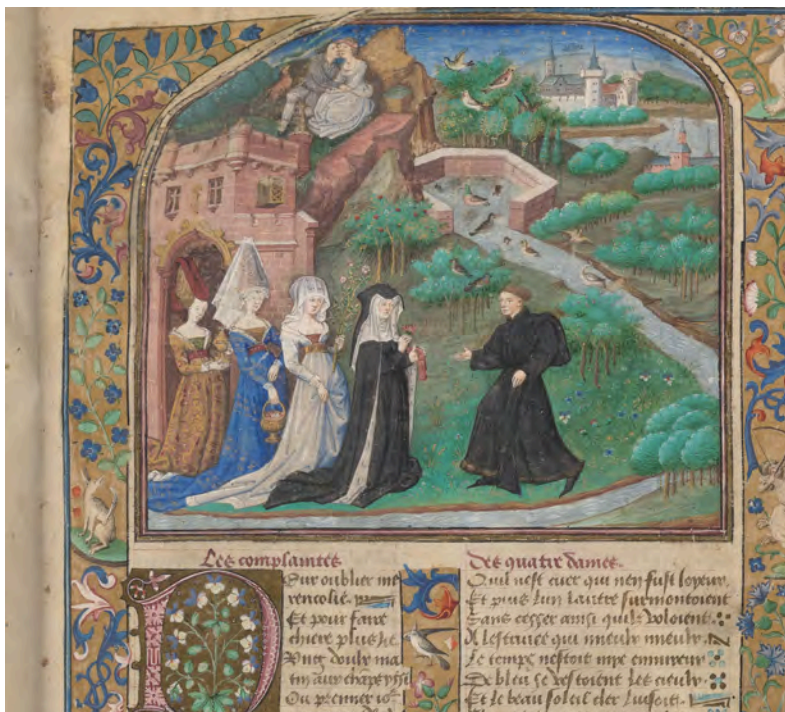 Les complaintes
Des quatre dames.
Pour oublier me
rencolie.
Et pour faire
chiere plus lie
Ung doulx ma
tin aux champs yssi
Ou premier io
Quil nest cuer qui nen fust ioyeux.
Et puis lun lautre surmontoient
Sans cesser ainsi quilz voloient.
A lestriuee qui mieulx mieulx.
Le temps nestoit mye ennuyeux
De bleu se vestoient les cieulx.
Et le beau soleil cler luisoit.